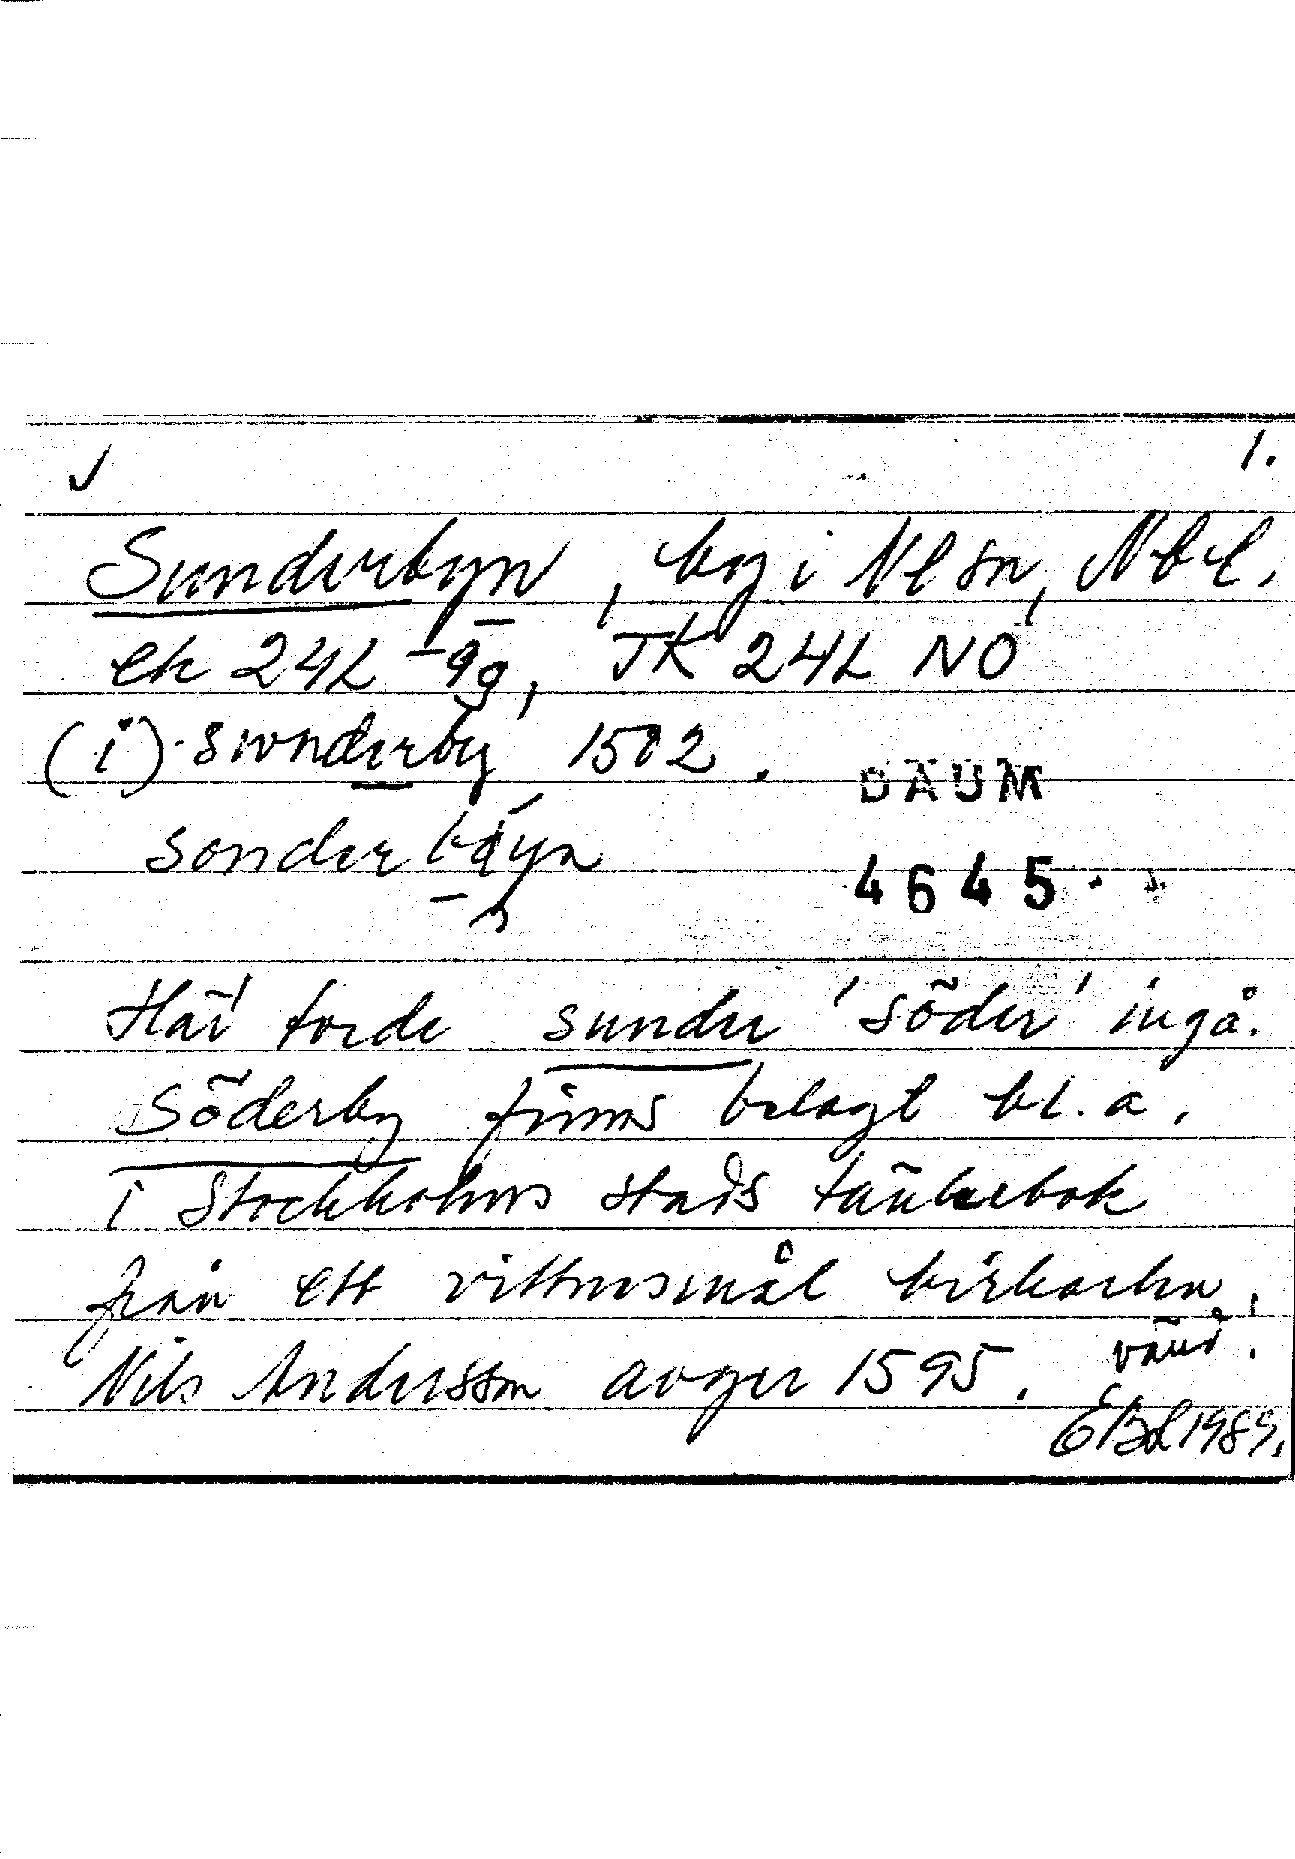 1.
Sunderbyn, by i Nl sn, Nbl.
ek 24L 9g, TK 24L NO
(i) swnderby 1502.
DAUM
sonder
4645
Här torde sunder 'söder' ingå.
Söderby finns belagt bl. a.
i Stockholms stads tänkebok
från ett vittnesmål birkarlen
Nils Andersson avger 1595. vänd!
EBL 1989.